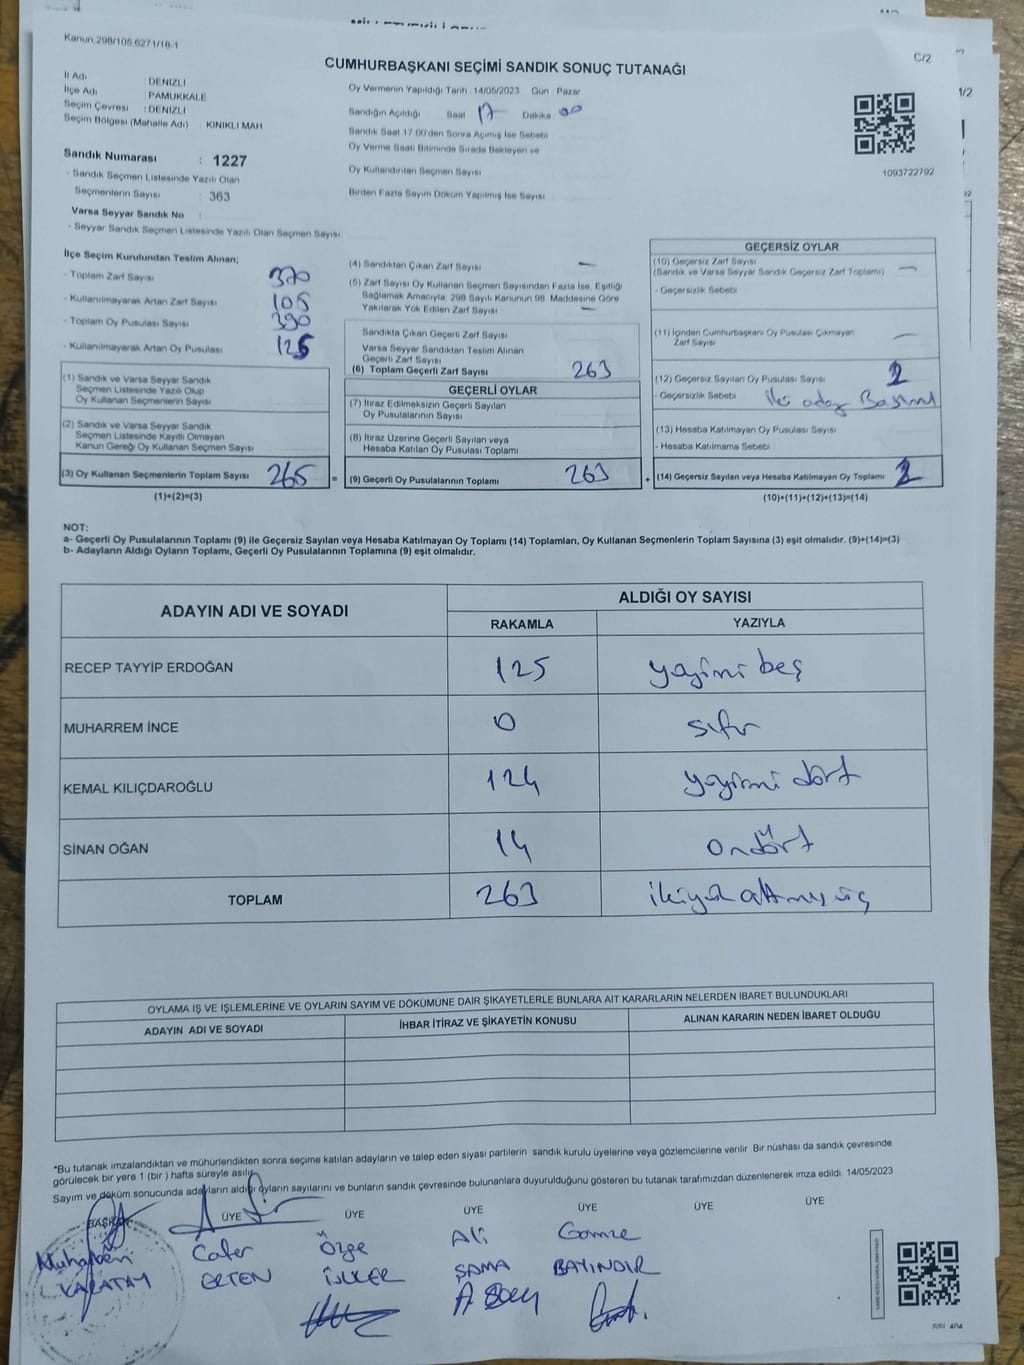 Kanun 298/105 6271/18-1
C/2
CUMHURBAŞKANI SEÇİMİ SANDIK SONUÇ TUTANAĞI
İl Adı DENİZLİ
İlçe Adı PAMUKKALE
Seçim Çevresi : DENİZLİ
Seçim Bölgesi (Mahalle Adı) : KINIKLI MAH
Oy Vermenin Yapıldığı Tarih 14/05/2023 Gün Pazar
Sandığın Açıldığı Saat 17 Dakika 00
Sandık Saat 17 00'den Sonra Açımış İse Sebebi
Oy Verme Saati Bitiminde Sırada Bekleyen ve
Oy Kullandırılan Seçmen Sayısı
Birden Fazla Sayım Döküm Yapılmış İse Sayısı
1093722792
Sandık Numarası : 1227
- Sandık Seçmen Listesinde Yazılı Olan
Seçmenlerin Sayısı : 363
Varsa Seyyar Sandık No :
- Seyyar Sandık Seçmen Listesinde Yazılı Olan Seçmen Sayısı
İlçe Seçim Kurulundan Teslim Alınan;
- Toplam Zarf Sayısı 370
- Kullanılmayarak Artan Zarf Sayısı 105
- Toplam Oy Pusulası Sayısı 390
- Kullanılmayarak Artan Oy Pusulası 125
(1) Sandık ve Varsa Seyyar Sandık
Seçmen Listesinde Yazılı Olup
Oy Kullanan Seçmenlerin Sayısı
(2) Sandık ve Varsa Seyyar Sandık
Seçmen Listesinde Kayıtlı Olmayan
Kanun Gereği Oy Kullanan Seçmen Sayısı
(3) Oy Kullanan Seçmenlerin Toplam Sayısı 265
(1)+(2)=(3)
(4) Sandıktan Çıkan Zarf Sayısı —
(5) Zarf Sayısı Oy Kullanan Seçmen Sayısından Fazla İse, Eşitliği
Sağlamak Amacıyla, 298 Sayılı Kanunun 98. Maddesine Göre
Yakılarak Yok Edilen Zarf Sayısı —
Sandıkta Çıkan Geçerli Zarf Sayısı
Varsa Seyyar Sandıktan Teslim Alınan
Geçerli Zarf Sayısı
(6) Toplam Geçerli Zarf Sayısı 263
GEÇERLİ OYLAR
(7) İtiraz Edilmeksizin Geçerli Sayılan
Oy Pusulalarının Sayısı
(8) İtiraz Üzerine Geçerli Sayılan veya
Hesaba Katılan Oy Pusulası Toplamı
= (9) Geçerli Oy Pusulalarının Toplamı 263
GEÇERSİZ OYLAR
(10) Geçersiz Zarf Sayısı
(Sandık ve Varsa Seyyar Sandık Geçersiz Zarf Toplamı) —
- Geçersizlik Sebebi
(11) İçinden Cumhurbaşkanı Oy Pusulası Çıkmayan
Zarf Sayısı —
(12) Geçersiz Sayılan Oy Pusulası Sayısı 2
- Geçersizlik Sebebi iki aday Basımı
(13) Hesaba Katılmayan Oy Pusulası Sayısı
- Hesaba Katılmama Sebebi
+ (14) Geçersiz Sayılan veya Hesaba Katılmayan Oy Toplamı 2
(10)+(11)+(12)+(13)=(14)
NOT:
a- Geçerli Oy Pusulalarının Toplamı (9) ile Geçersiz Sayılan veya Hesaba Katılmayan Oy Toplamı (14) Toplamları, Oy Kullanan Seçmenlerin Toplam Sayısına (3) eşit olmalıdır. (9)+(14)=(3)
b- Adayların Aldığı Oyların Toplamı, Geçerli Oy Pusulalarının Toplamına (9) eşit olmalıdır.
ADAYIN ADI VE SOYADI
ALDIĞI OY SAYISI
RAKAMLA YAZIYLA
RECEP TAYYİP ERDOĞAN 125 yüzyirmi beş
MUHARREM İNCE 0 sıfır
KEMAL KILIÇDAROĞLU 124 yüzyirmi dört
SİNAN OĞAN 14 ondört
TOPLAM 263 ikiyüz altmış üç
OYLAMA İŞ VE İŞLEMLERİNE VE OYLARIN SAYIM VE DÖKÜMÜNE DAİR ŞİKAYETLERLE BUNLARA AİT KARARLARIN NELERDEN İBARET BULUNDUKLARI
ADAYIN ADI VE SOYADI İHBAR İTİRAZ VE ŞİKAYETİN KONUSU ALINAN KARARIN NEDEN İBARET OLDUĞU
*Bu tutanak imzalandıktan ve mühürlendikten sonra seçime katılan adayların ve talep eden siyasi partilerin sandık kurulu üyelerine veya gözlemcilerine verilir Bir nüshası da sandık çevresinde
görülecek bir yere 1 (bir ) hafta süreyle asılır
Sayım ve döküm sonucunda adayların aldığı oyların sayılarını ve bunların sandık çevresinde bulunanlara duyurulduğunu gösteren bu tutanak tarafımızdan düzenlenerek imza edildi. 14/05/2023
BAŞKAN ÜYE ÜYE ÜYE ÜYE ÜYE ÜYE
Cafer Özge Ali Gamze
KARATAY ERTEN İLKER ŞAMA BAYINDIR